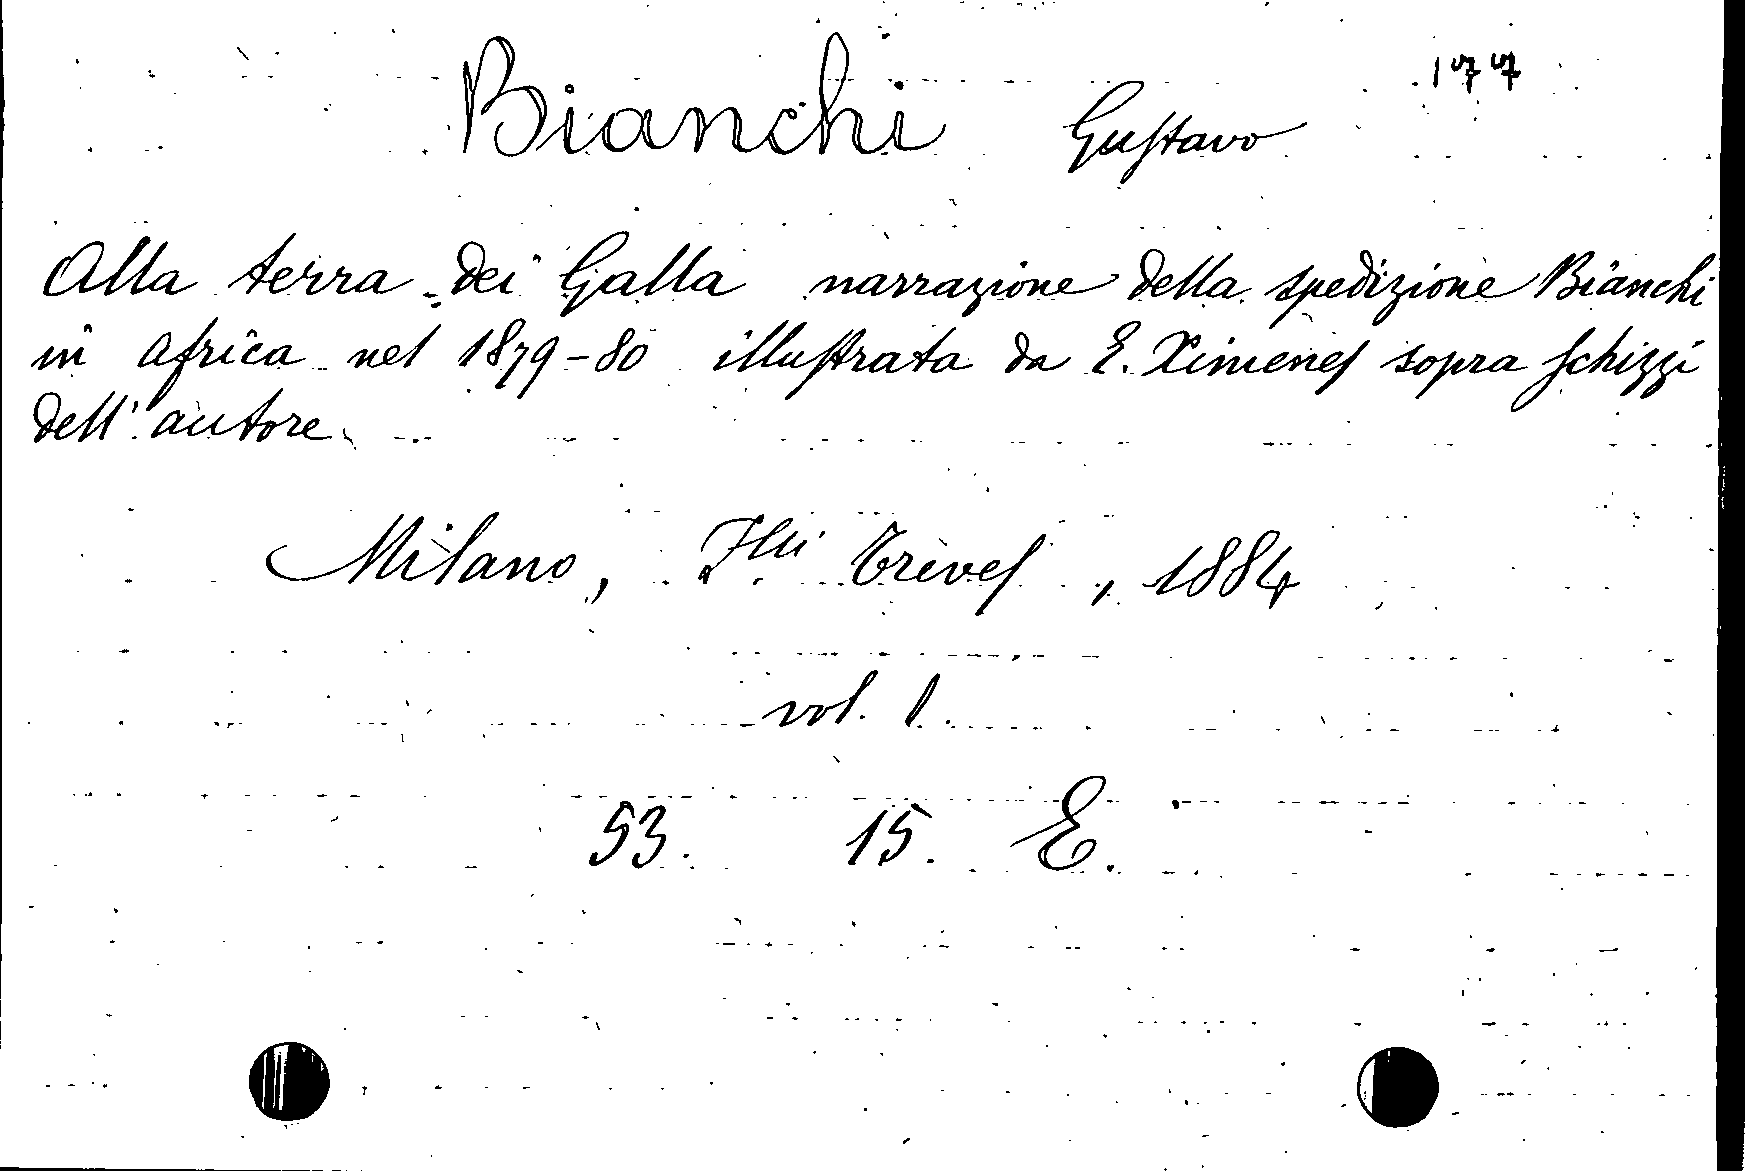 177
Bianchi Gustavo
Alla terra dei Galla narrazione della spedizione Bianchi
in Africa nel 1879-80 illustrata da E. Ximenes sopra schizzi
dell'autore
Milano, Flli Treves, 1884
vol. 1.
53. 15. E.